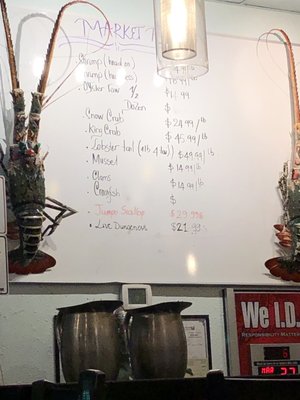 MARKET
Shrimp (head on)
Shrimp (h
Oyster Raw 1/2 $ 11.99
Dozen $
Snow Crab $ 24.99/lb
King Crab $ 45.99/lb
Lobster tail (1lb 4 tail) $49.99/lb
Mussel $ 14.99/lb
Clams $ 14.99/lb
Crawfish $
Jumbo Scallop $ 29.99
Live Dungeness $21.99
We I.D.
RESPONSIBILITY MATTERS
MAR 27